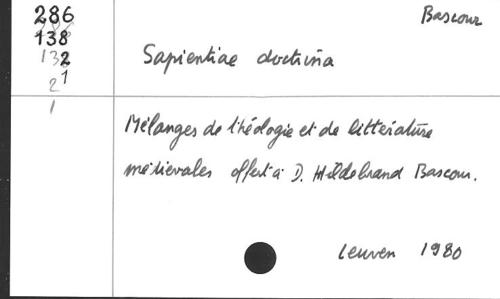 286
Bascour
138
132
Sapientiae doctrina
2 1
1
Mélanges de théologie et de littérature
médievales offert à D. Hildebrand Bascour.
Leuven 1980